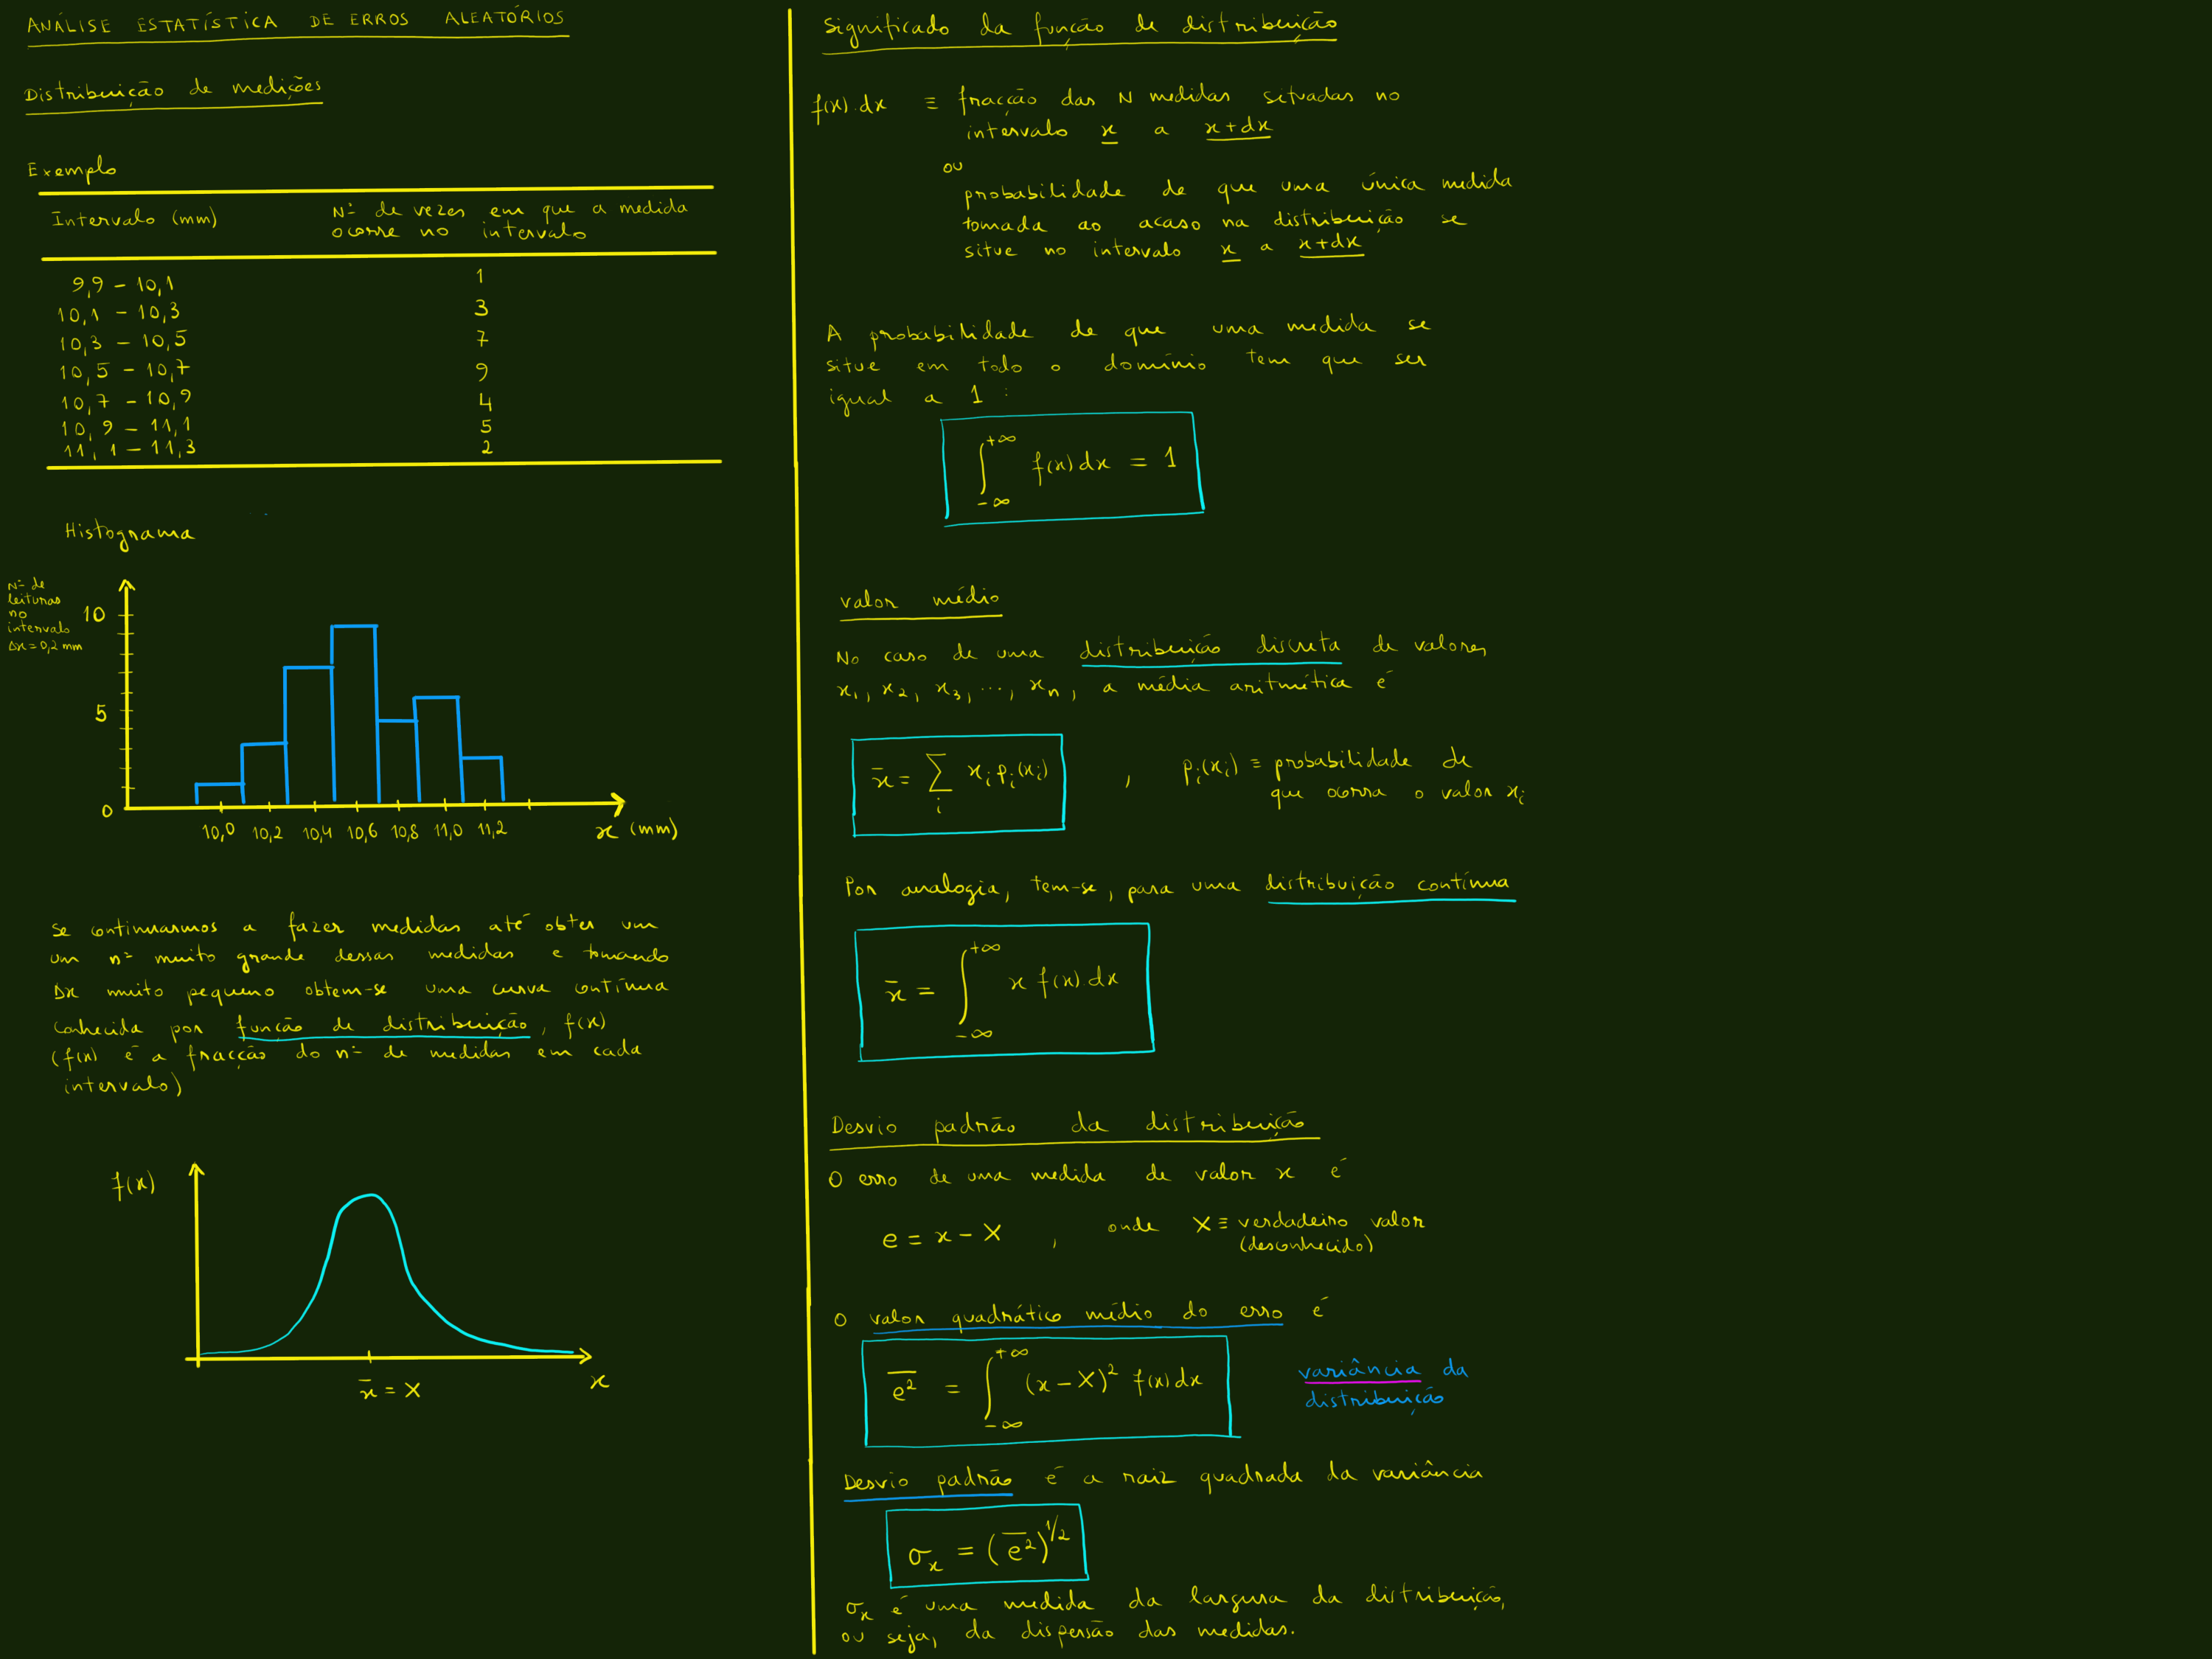 ANÁLISE ESTATÍSTICA DE ERROS ALEATÓRIOS
Distribuição de medições
Exemplo
Intervalo (mm) Nº de vezes em que a medida
ocorre no intervalo
9,9 - 10,1 1
10,1 - 10,3 3
10,3 - 10,5 7
10,5 - 10,7 9
10,7 - 10,9 4
10,9 - 11,1 5
11,1 - 11,3 2
Histograma
Nº de
leituras
no
intervalo
Δx=0,2 mm
10
5
0
10,0 10,2 10,4 10,6 10,8 11,0 11,2 x (mm)
Se continuarmos a fazer medidas até obter um
um nº muito grande dessas medidas e tomando
Δx muito pequeno obtem-se uma curva contínua
conhecida por função de distribuição, f(x)
(f(x) é a fracção do nº de medidas em cada
intervalo)
f(x)
x̄ = X
x
Significado da função de distribuição
f(x).dx ≡ fracção das N medidas situadas no
intervalo x a x+dx
ou
probabilidade de que uma única medida
tomada ao acaso na distribuição se
situe no intervalo x a x+dx
A probabilidade de que uma medida se
situe em todo o domínio tem que ser
igual a 1 :
∫_{-∞}^{+∞} f(x)dx = 1
valor médio
No caso de uma distribuição discreta de valores
x₁, x₂, x₃, ..., xₙ, a média aritmética é
x̄ = ∑_i xᵢ pᵢ(xᵢ) , pᵢ(xᵢ) ≡ probabilidade de
que ocorra o valor xᵢ
Por analogia, tem-se, para uma distribuição contínua
x̄ = ∫_{-∞}^{+∞} x f(x).dx
Desvio padrão da distribuição
O erro de uma medida de valor x é
e = x - X , onde X ≡ verdadeiro valor
(desconhecido)
O valor quadrático médio do erro é
\overline{e²} = ∫_{-∞}^{+∞} (x-X)² f(x)dx
variância da
distribuição
Desvio padrão é a raiz quadrada da variância
σₓ = (\overline{e²})^{1/2}
σₓ é uma medida da largura da distribuição,
ou seja, da dispersão das medidas.